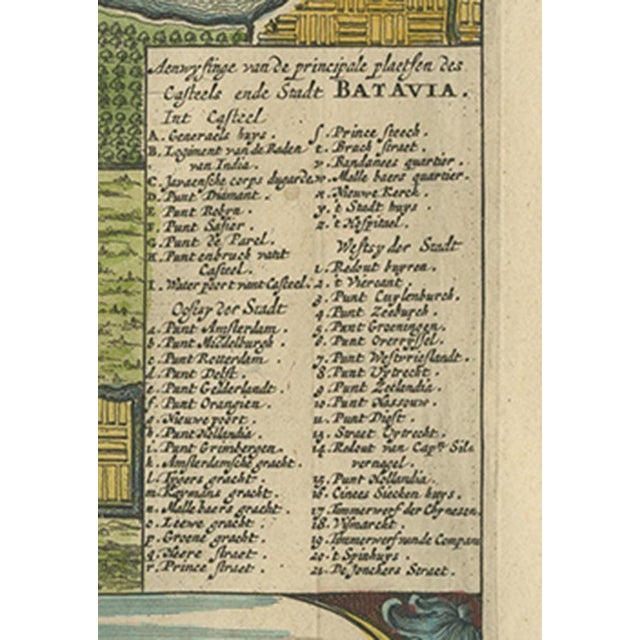 Aenwysinge van de principale plaetsen des
Casteels ende Stadt BATAVIA.
Int Casteel
A. Generaels huys.
B. Logiment van de Raden
van India.
C. Javaensche corps dugarde.
D. Punt Diamant.
E Punt Robyn.
F Punt Safier.
G. Punt de Parel.
H. Punt enbruck vant
Casteel.
I. Water poort vant Casteel.
Oostsy der Stadt
a. Punt Amsterdam.
b. Punt Middelburgh.
c. Punt Rotterdam.
d. Punt Delft.
e. Punt Gelderlandt.
f. Punt Orangien.
g. Nieuwe poort.
h. Punt Hollandia.
i. Punt Grimbergen.
k. Amsterdamsche gracht.
l. Tygers gracht.
m. Kaymans gracht.
n. Malle baers gracht.
o. Leewe gracht.
p. Groene gracht.
q. Heere straet.
r. Prince straet.
ſ. Prince steech.
t. Bruch straet.
v. Bandanees quartier.
w. Malle baers quartier.
x. Nieuwe Kerck.
y. 't Stadt huys.
z. 't Hospitael.
Westsy der Stadt
1. Redout buyren.
2. 't Viercant.
3 Punt Cuylenburch.
4 Punt Zeeburch.
5. Punt Groeningen.
6. Punt Overyssel.
7. Punt Westvrieslandt.
8 Punt Uytrecht.
9. Punt Zeelandia.
10. Punt Nassouw.
11. Punt Diest.
13. Straet Uytrecht.
14. Redout van Capn. Sil=
vernagel.
15. Punt Hollandia.
16. Cinees Siecken huys.
17. Timmerwerf der Chynesen
18. Vismarckt.
19. Timmerwerf vande Compan
20. 't Spinhuys.
21. De Jonckers Straet.